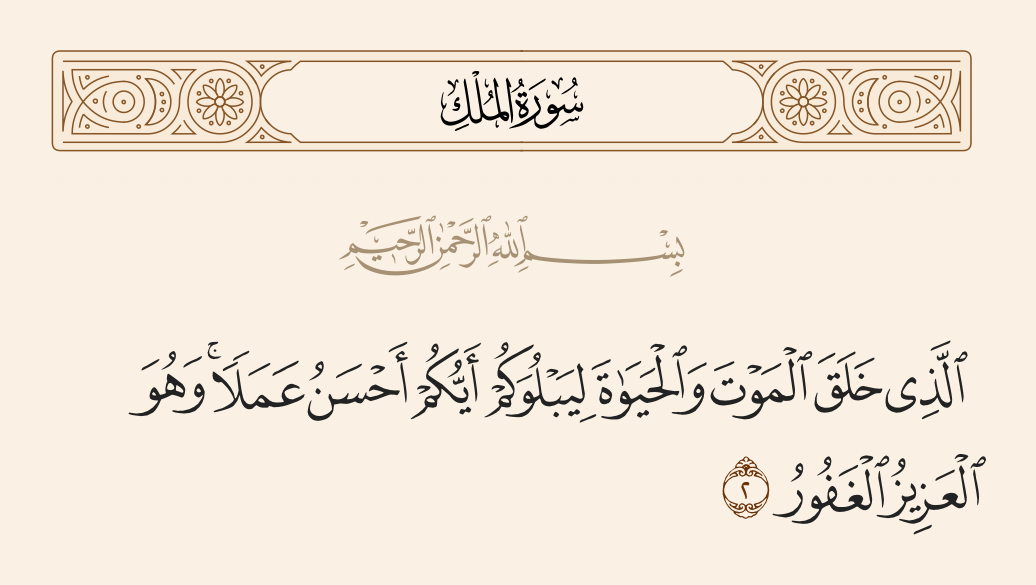 سُورَةُ المُلْكِ
بِسْمِ ٱللَّهِ ٱلرَّحْمَٰنِ ٱلرَّحِيمِ
ٱلَّذِى خَلَقَ ٱلْمَوْتَ وَٱلْحَيَوٰةَ لِيَبْلُوَكُمْ أَيُّكُمْ أَحْسَنُ عَمَلًا ۚ وَهُوَ
ٱلْعَزِيزُ ٱلْغَفُورُ ٢